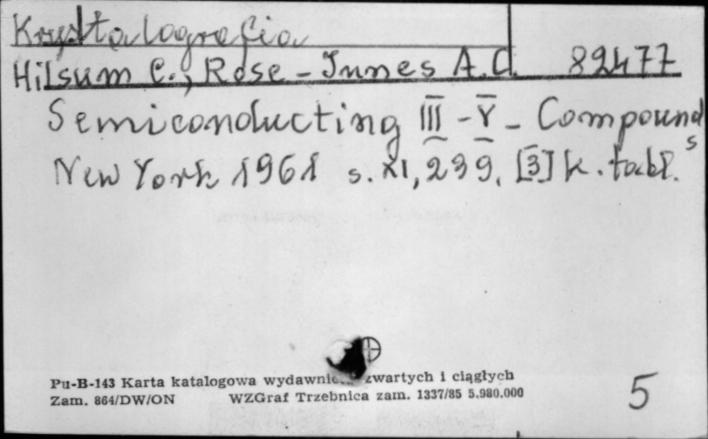 Krystalografia
Hilsum C., Rose-Innes A.C. 82477
Semiconducting III-V-Compounds
New York 1961 s. XI, 239, [3] k. tabl.
Pu-B-143 Karta katalogowa wydawnic zwartych i ciągłych
Zam. 864/DW/ON WZGraf Trzebnica zam. 1337/85 5.980.000
5